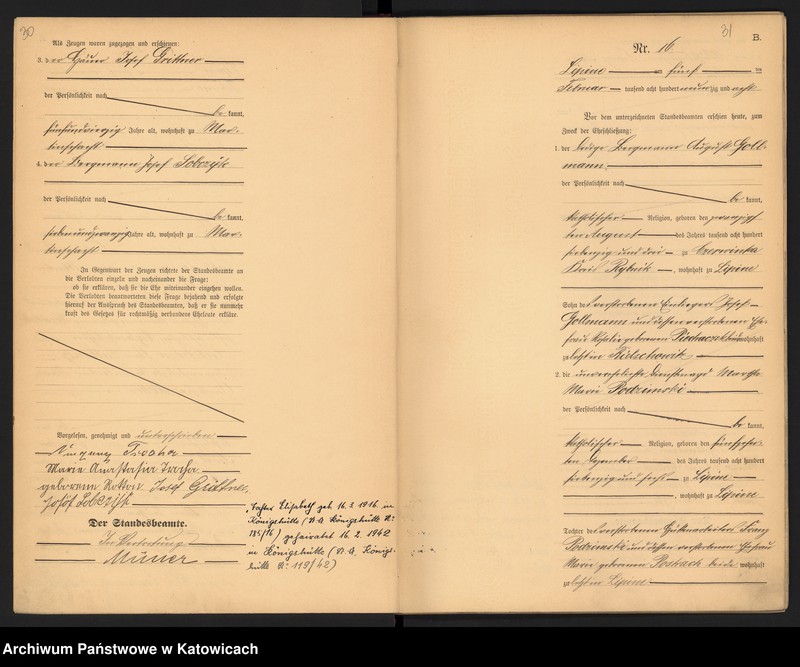 30
Als Zeugen waren zugezogen und erschienen:
3. der Häuer Josef Grittner
der Persönlichkeit nach
be kannt,
fünfundvierzig Jahre alt, wohnhaft zu Mar-
tinschacht
4. der Bergmann Josef Sobczyk
der Persönlichkeit nach
be kannt,
siebenundzwanzig Jahre alt, wohnhaft zu Mar-
tinschacht
In Gegenwart der Zeugen richtete der Standesbeamte an
die Verlobten einzeln und nacheinander die Frage:
ob sie erklären, daß sie die Ehe miteinander eingehen wollen.
Die Verlobten beantworteten diese Frage bejahend und erfolgte
hierauf der Ausspruch des Standesbeamten, daß er sie nunmehr
kraft des Gesetzes für rechtmäßig verbundene Eheleute erkläre.
Vorgelesen, genehmigt und unterschrieben
Marie Anastasia
geborene Josef Grittner
Josef Sobczyk
Der Standesbeamte.
In Vertretung
Tochter Elisabeth geb 16.3.1916 in
Königshütte (St. A. Königshütte Nr
185/16) geheiratet 16.2.1942
in Königshütte (St. A. Königs-
hütte Nr 119/42)
31
B.
Nr. 16
Lipine am fünf ten
Februar tausend acht hundert neunzig und acht
Vor dem unterzeichneten Standesbeamten erschien heute, zum
Zweck der Eheschließung:
1. der ledige Bergmann August Goll-
mann
der Persönlichkeit nach
be kannt,
katholischer Religion, geboren den zwanzigs-
ten August des Jahres tausend acht hundert
siebenzig und drei zu Czerwionka
Kreis Rybnik, wohnhaft zu Lipine
Sohn des verstorbenen Einliegers Josef
Gollmann und dessen verstorbenen Ehe-
frau Rosalie geborenen wohnhaft
zuletzt in
2. die unverehelichte Dienstmagd Martha
Marie Podzimski
der Persönlichkeit nach
be kannt,
katholischer Religion, geboren den
ten des Jahres tausend acht hundert
siebenzig und sechs zu Lipine
, wohnhaft zu Lipine
Tochter des verstorbenen Hüttenarbeiters Franz
Podzimski und dessen verstorbenen Ehefrau
Marie geborenen beide wohnhaft
zuletzt in Lipine
Archiwum Państwowe w Katowicach